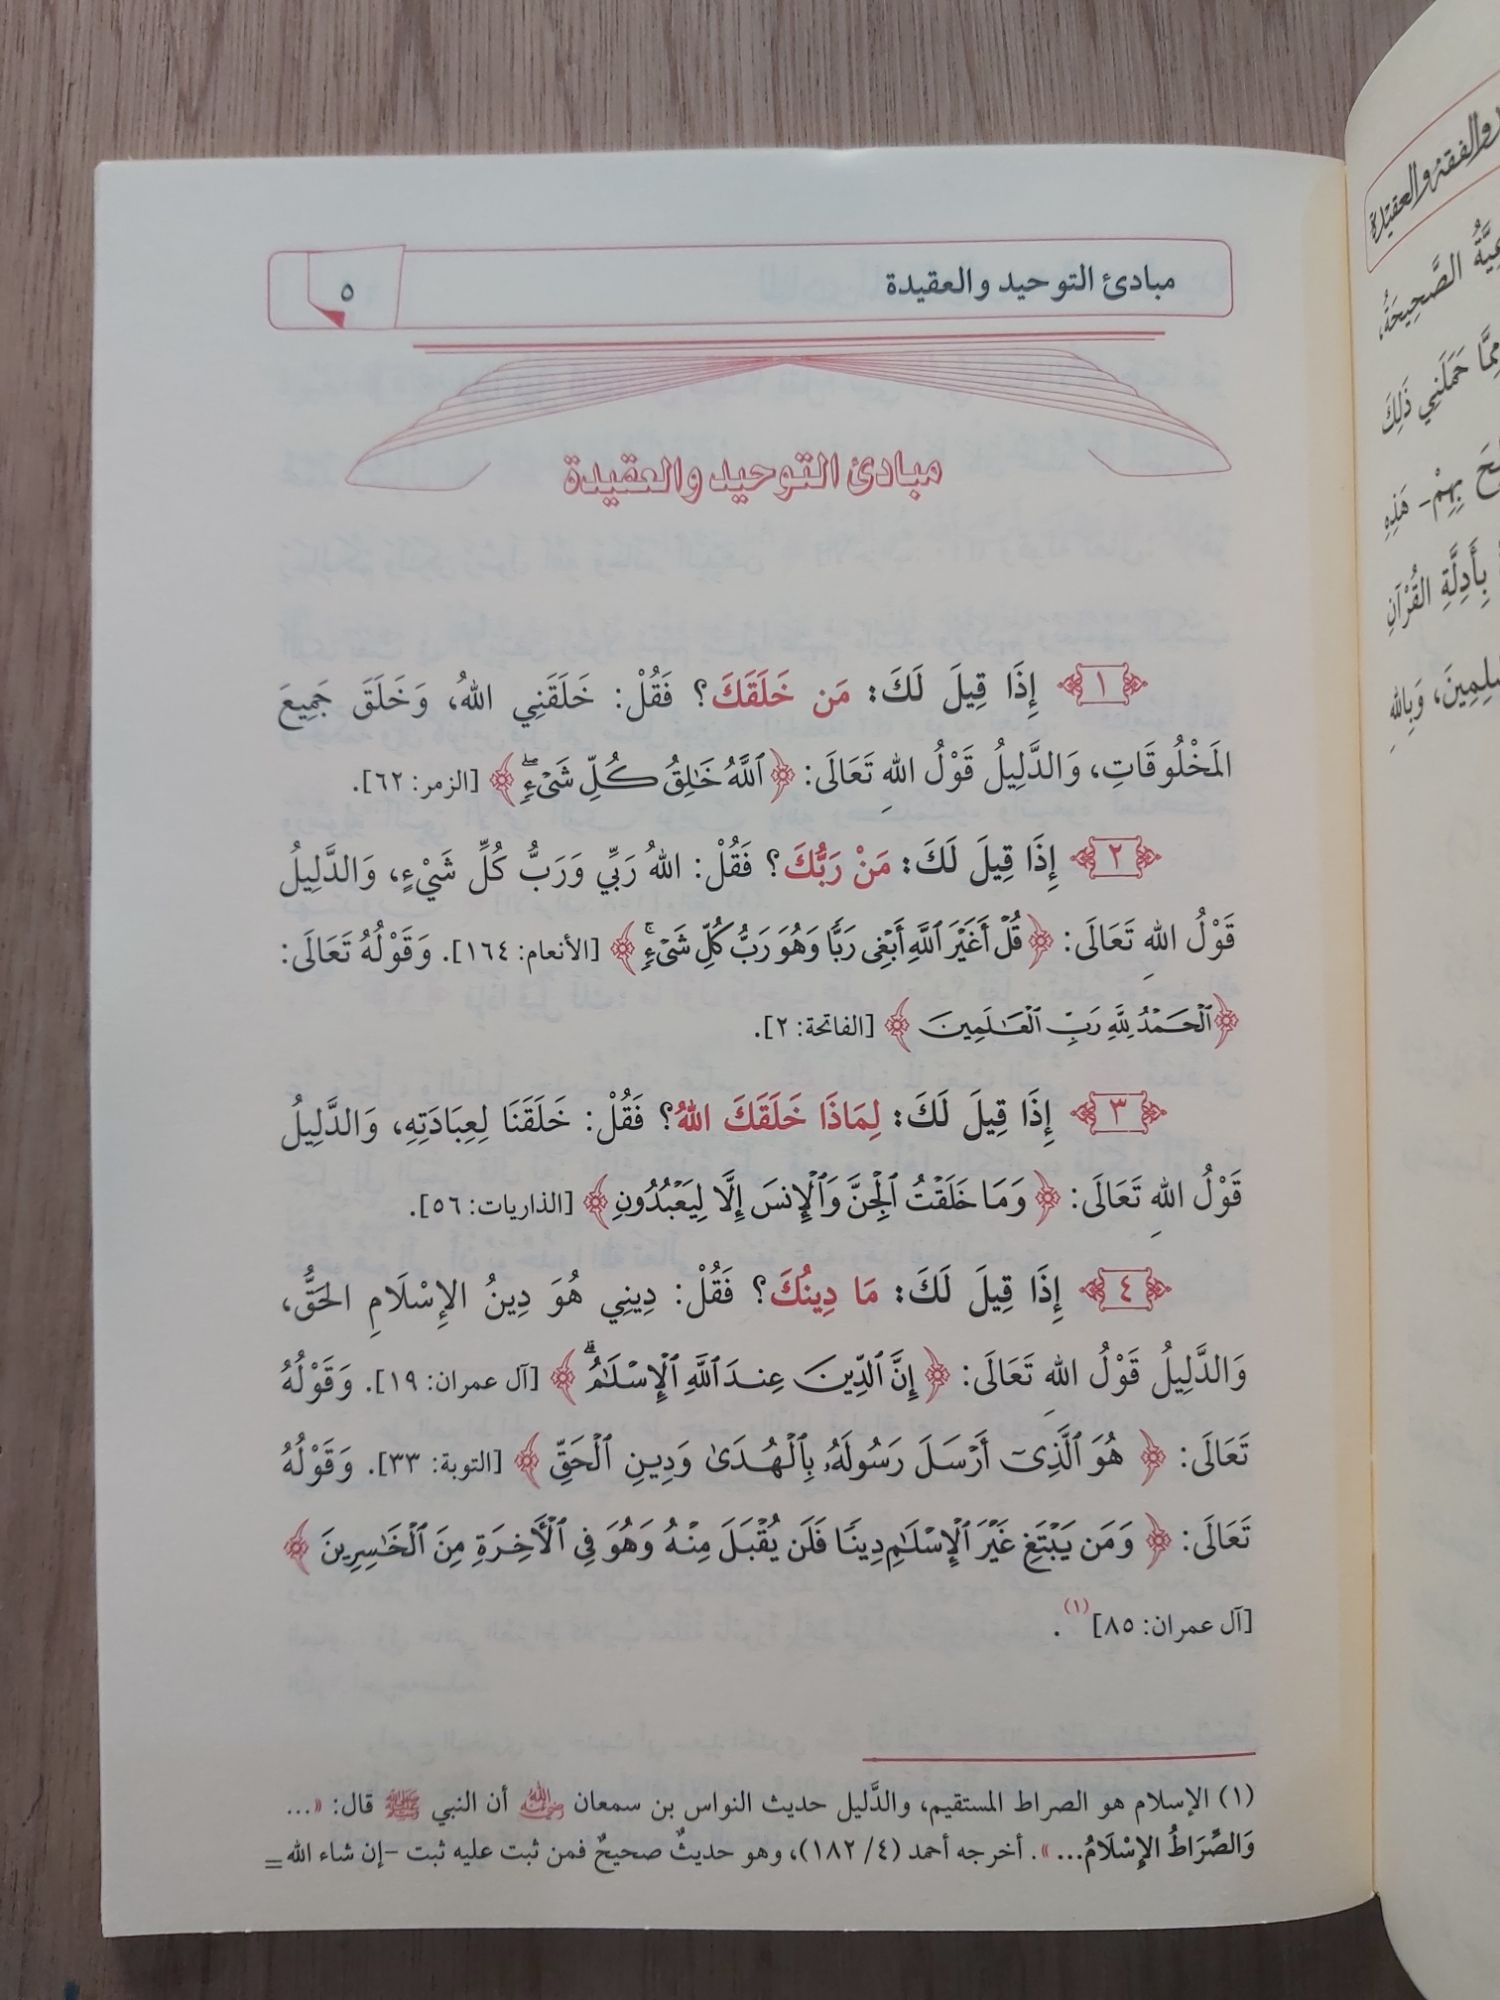 مبادئ التوحيد والعقيدة
٥
مبادئ التوحيد والعقيدة
١ إِذَا قِيلَ لَكَ: مَن خَلَقَكَ؟ فَقُلْ: خَلَقَنِي اللهُ، وَخَلَقَ جَمِيعَ
المَخْلُوقَاتِ، وَالدَّلِيلُ قَوْلُ اللهِ تَعَالَى: ﴿ٱللَّهُ خَٰلِقُ كُلِّ شَىْءٍۖ﴾ [الزمر: ٦٢].
٢ إِذَا قِيلَ لَكَ: مَنْ رَبُّكَ؟ فَقُلْ: اللهُ رَبِّي وَرَبُّ كُلِّ شَيْءٍ، وَالدَّلِيلُ
قَوْلُ اللهِ تَعَالَى: ﴿قُلْ أَغَيْرَ ٱللَّهِ أَبْغِى رَبًّا وَهُوَ رَبُّ كُلِّ شَىْءٍۚ﴾ [الأنعام: ١٦٤]. وَقَوْلُهُ تَعَالَى:
﴿ٱلْحَمْدُ لِلَّهِ رَبِّ ٱلْعَٰلَمِينَ﴾ [الفاتحة: ٢].
٣ إِذَا قِيلَ لَكَ: لِمَاذَا خَلَقَكَ اللهُ؟ فَقُلْ: خَلَقَنَا لِعِبَادَتِهِ، وَالدَّلِيلُ
قَوْلُ اللهِ تَعَالَى: ﴿وَمَا خَلَقْتُ ٱلْجِنَّ وَٱلْإِنسَ إِلَّا لِيَعْبُدُونِ﴾ [الذاريات: ٥٦].
٤ إِذَا قِيلَ لَكَ: مَا دِينُكَ؟ فَقُلْ: دِينِي هُوَ دِينُ الإِسْلَامِ الحَقُّ،
وَالدَّلِيلُ قَوْلُ اللهِ تَعَالَى: ﴿إِنَّ ٱلدِّينَ عِندَ ٱللَّهِ ٱلْإِسْلَٰمُۗ﴾ [آل عمران: ١٩]. وَقَوْلُهُ
تَعَالَى: ﴿هُوَ ٱلَّذِىٓ أَرْسَلَ رَسُولَهُۥ بِٱلْهُدَىٰ وَدِينِ ٱلْحَقِّ﴾ [التوبة: ٣٣]. وَقَوْلُهُ
تَعَالَى: ﴿وَمَن يَبْتَغِ غَيْرَ ٱلْإِسْلَٰمِ دِينًا فَلَن يُقْبَلَ مِنْهُ وَهُوَ فِى ٱلْأَخِرَةِ مِنَ ٱلْخَٰسِرِينَ﴾
[آل عمران: ٨٥](١).
(١) الإسلام هو الصراط المستقيم، والدَّليل حديث النواس بن سمعان رضي الله عنه أن النبي ﷺ قال: «...
وَالصِّرَاطُ الإِسْلَامُ...». أخرجه أحمد (٤/ ١٨٢)، وهو حديثٌ صحيحٌ فمن ثبت عليه ثبت -إن شاء الله =
والفقه والعقيدة
الصَّحِيحَةُ،
مِمَّا حَمَلَنِي ذَلِكَ
بِهِمْ- هَذِهِ
بِأَدِلَّةِ القُرْآنِ
وَبِاللهِ